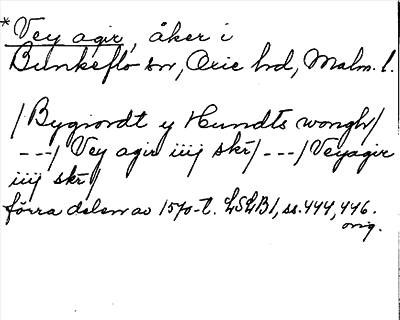 *Vey agir, åker i
Bunkeflo sn, Oxie hd, Malm. l.
/Bygiordt y Hundts wongh/
---/ Vey agir iiij skr/ ---/ Veyagir
iiij skr/
förra delen av 1570-t. LSLB1, ss. 444, 446.
orig.